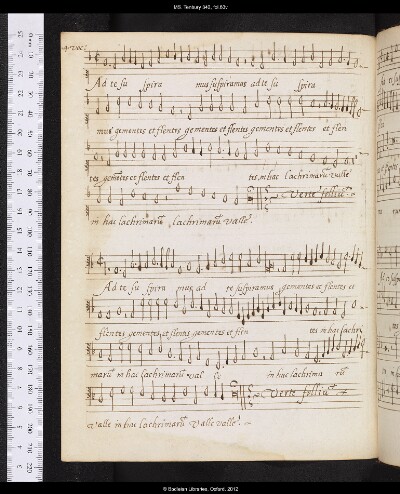 MS. Tenbury 342, fol.63v
4. voc:
Ad te su spira mus suspiramus ad te su spira
mus gementes et flentes gementes et flentes gementes et flentes et flen
tes gemẽtes et flentes et flen tes, in hac lachrimarũ valle
Verte foliũ.
in hac lachrimarũ lachrimarũ valle.
Ad te su spira mus ad te suspiramus gementes et flentes et
flentes gementes et flentes gementes et flen tes in hac lachri
marũ in hac lachrimarũ val le in hac lachrima rũ
Verte foliũ.
valle in hac lachrimarũ valle valle.
© Bodleian Libraries, Oxford, 2012